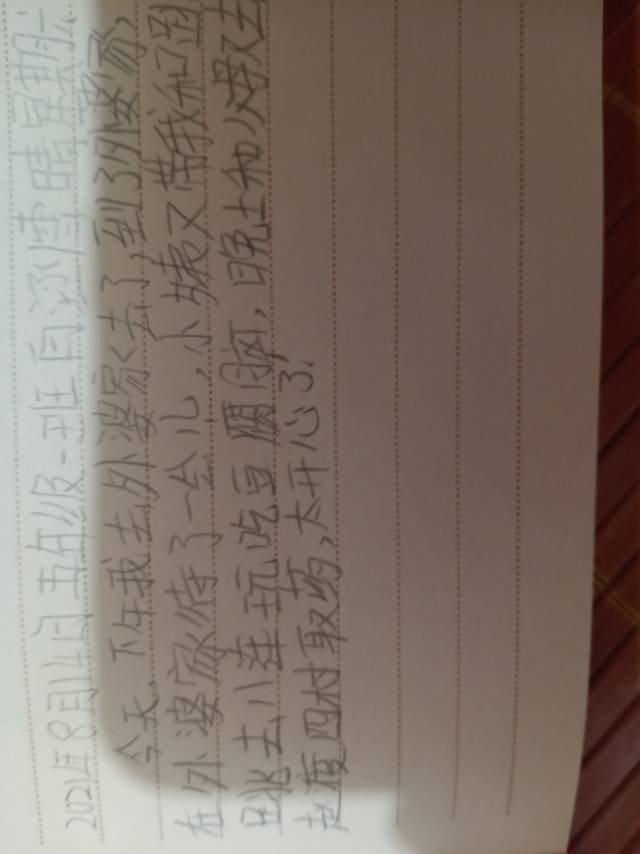 2021年8月14日五年级一班白 雪 晴星期六
今天、下午我去外婆家去了,到了外婆家,
在外婆家待了一会儿,小姨又带我和
去八连玩吃豆腐脑,晚上和父母又去
赵渡四村取药,太开心了.